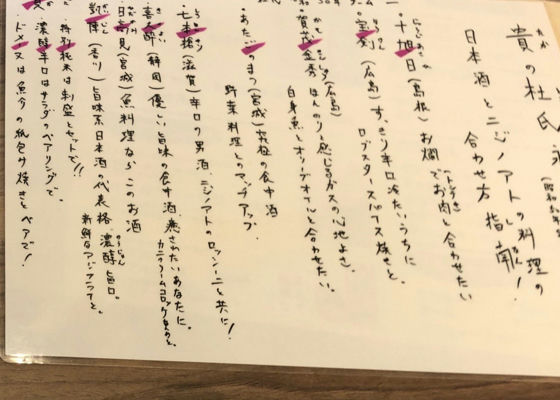 貴の杜氏
日本酒とニジノアトの料理の
合わせ方指南!
・十旭日(島根)お燗でお肉と合わせたい
・宝剣(広島)すっきり辛口冷たいうちに
ロブスタースパイス焼きと。
賀茂金秀(広島)ほんのりと感じるガスの心地よさ。
白身魚とオリーブオイルと合わせたい。
・あたごのまつ(宮城)究極の食中酒
野菜料理とのマッチアップ
・七本槍(滋賀)辛口の男酒。ニジノアトのロッシーニと共に!
・喜久酔(静岡)優しい旨味の食中酒。癒されたいあなたに。
カニクリームコロッケ
・日高見(宮城)魚料理ならこのお酒
(香川)旨味系日本酒の代表格 濃醇旨口。
新鮮な
純米は刺盛とセットで!!
濃醇辛口はサラダのペアリングで。
・ドメーヌは魚介の紙包み焼きとペアで!